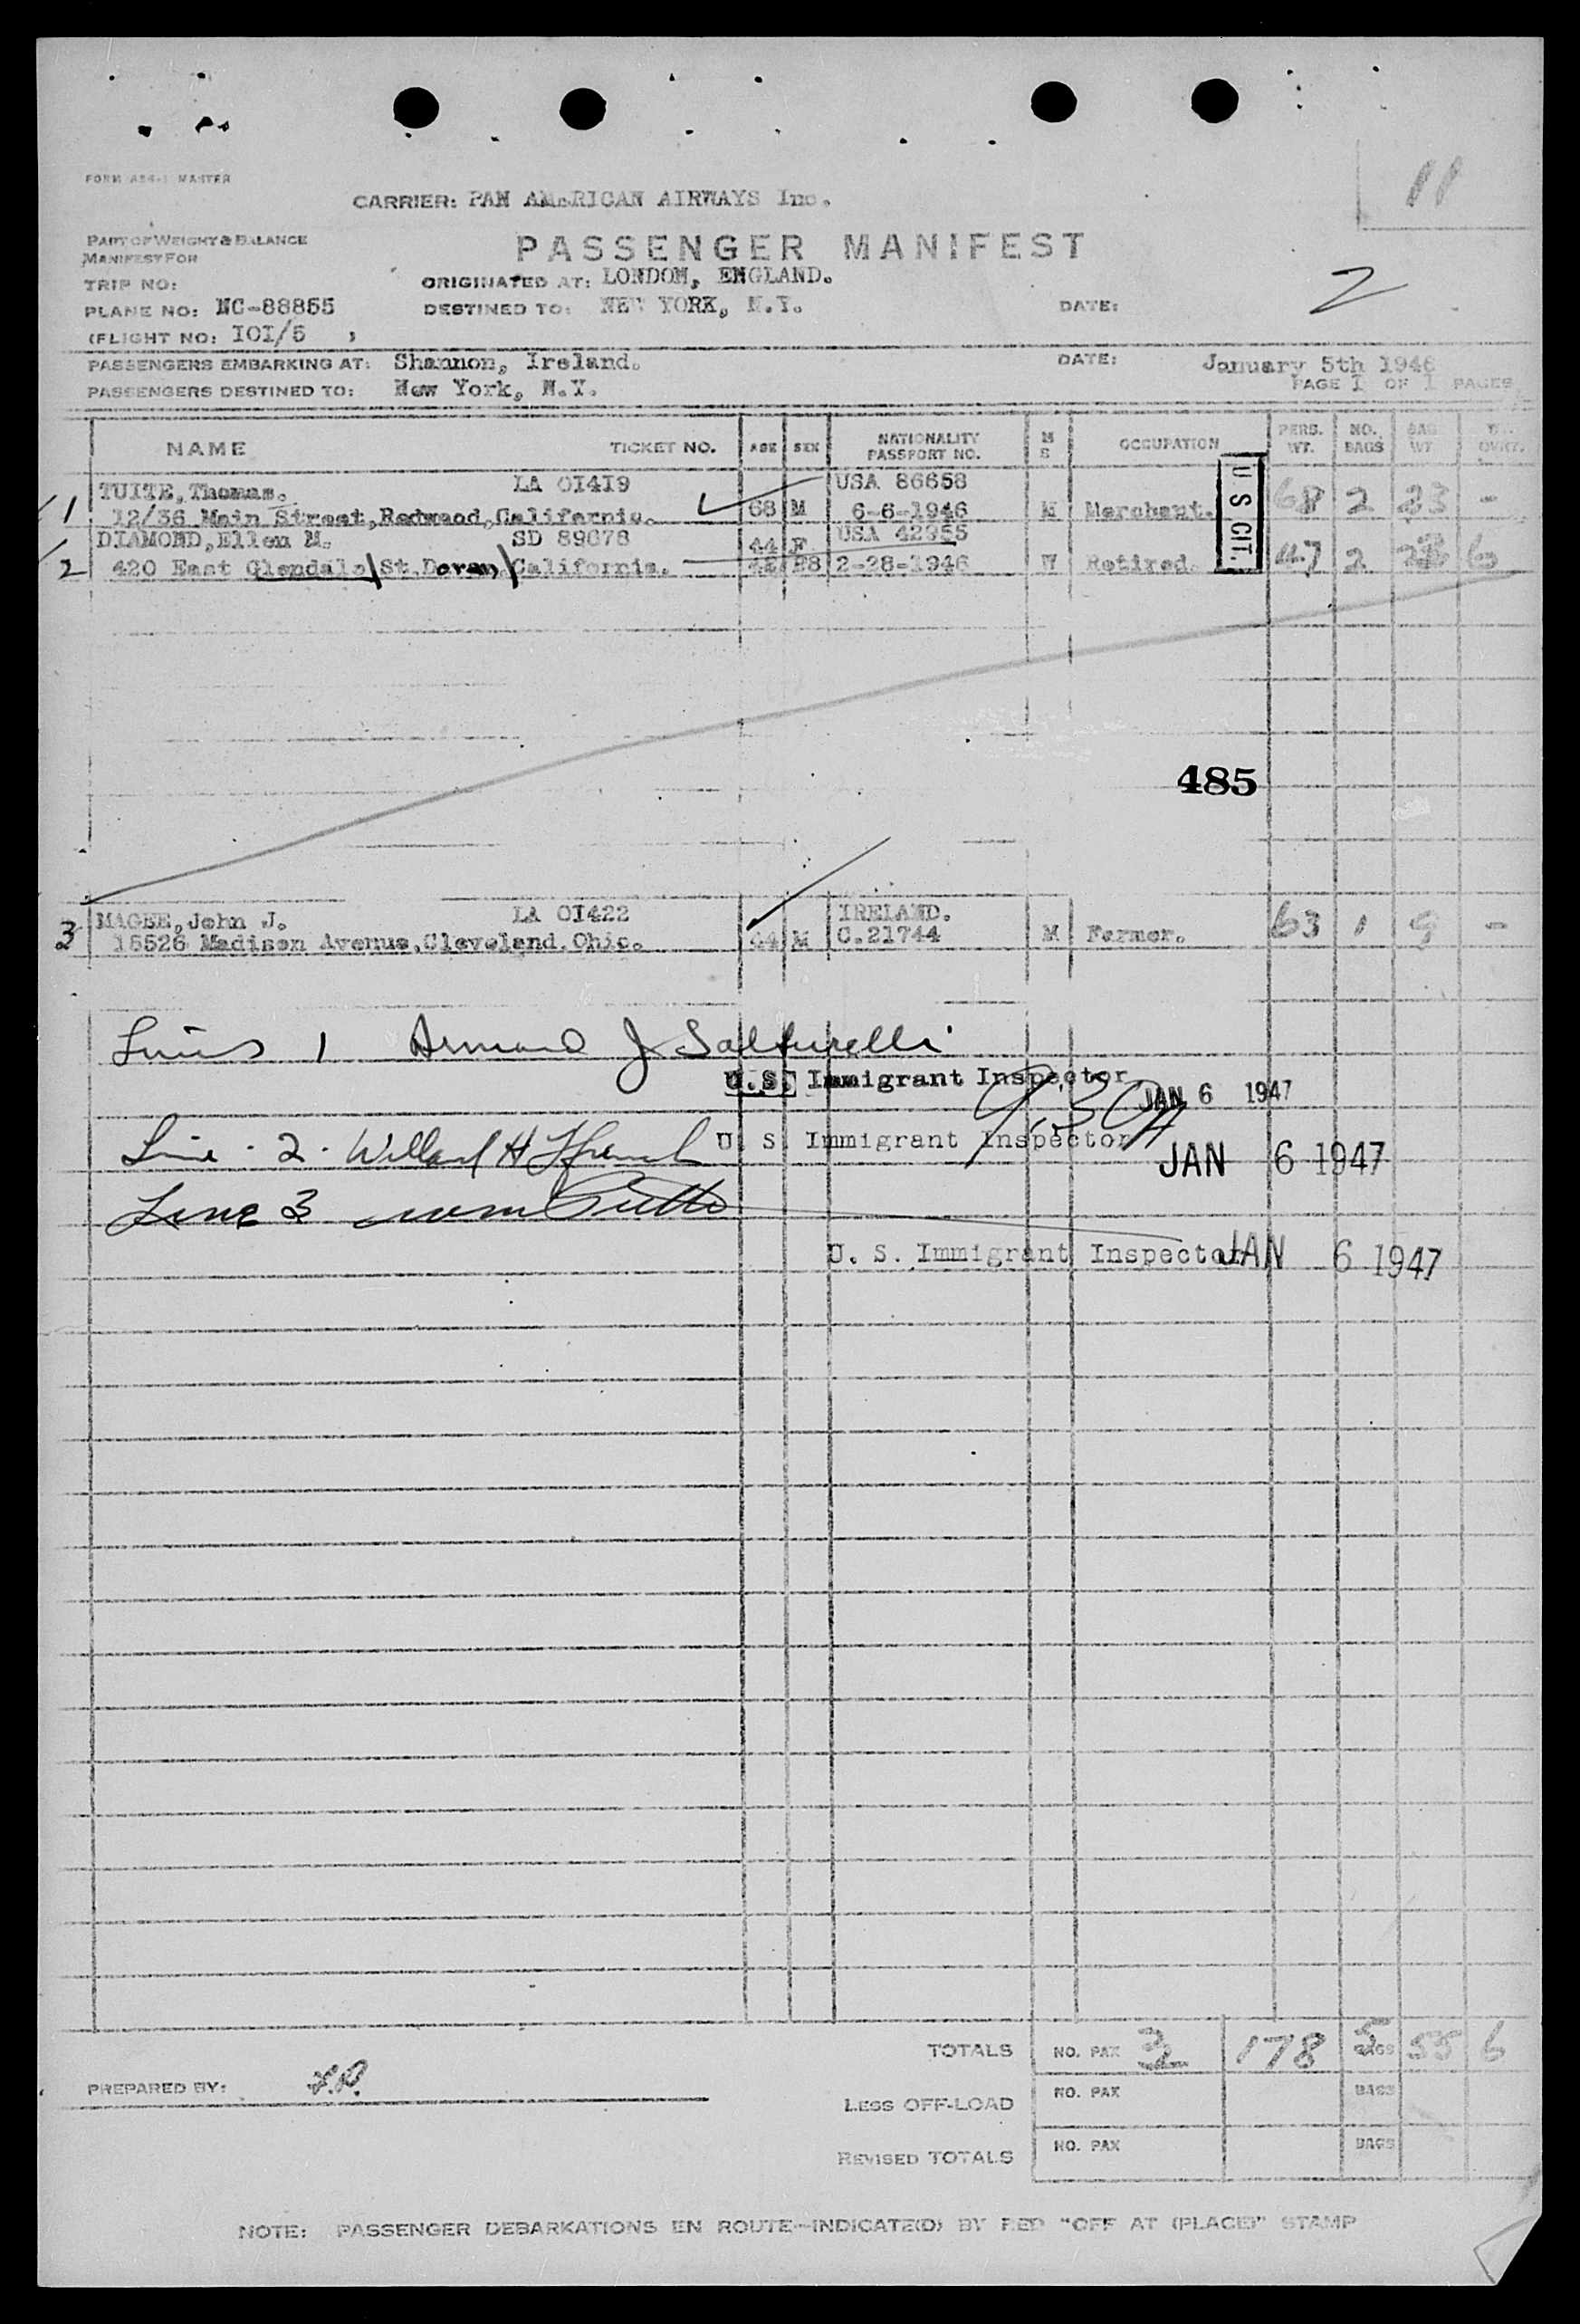 11
FORM MASTER
CARRIER: PAN AMERICAN AIRWAYS Inc.
PART OF WEIGHT & BALANCE
MANIFEST FOR
PASSENGER MANIFEST
TRIP NO:
ORIGINATED AT: LONDON, ENGLAND.
2
PLANE NO: NC-88855
DESTINED TO: NEW YORK, N.Y.
DATE:
(FLIGHT NO: IOI/5 )
PASSENGERS EMBARKING AT: Shannon, Ireland.
DATE: January 5th 1946
PASSENGERS DESTINED TO: New York, N.Y.
PAGE 1 OF 1 PAGES
NAME TICKET NO. AGE SEX NATIONALITY PASSPORT NO. M S OCCUPATION PERS. WT. NO. BAGS BAG WT
TUITE, Thomas. LA OI4I9 USA 86658
1 12/36 Main Street, Redwood, California. 68 M 6-6-1946 M Merchant. 68 2 23 -
DIAMOND, Ellen M. SD 89078 44 F USA 42955
2 420 East Glendale St. Doran California. 2-28-1946 W Retired. 47 2 23 6
U S CIT.
485
MAGEE, John J. LA OI422 IRELAND.
3 15526 Madison Avenue, Cleveland, Ohio. 44 M C.21744 M Farmer. 63 1 9 -
1 Armand J
U.S. Immigrant Inspector
JAN 6 1947
Line - 2 - Willard H
U S Immigrant Inspector
JAN 6 1947
Line 3
U. S. Immigrant Inspector
JAN 6 1947
TOTALS NO. PAX 3 178 5 BAGS 55 6
PREPARED BY:
LESS OFF-LOAD NO. PAX BAGS
REVISED TOTALS NO. PAX BAGS
NOTE: PASSENGER DEBARKATIONS EN ROUTE-INDICATE(D) BY RED "OFF AT (PLACE)" STAMP